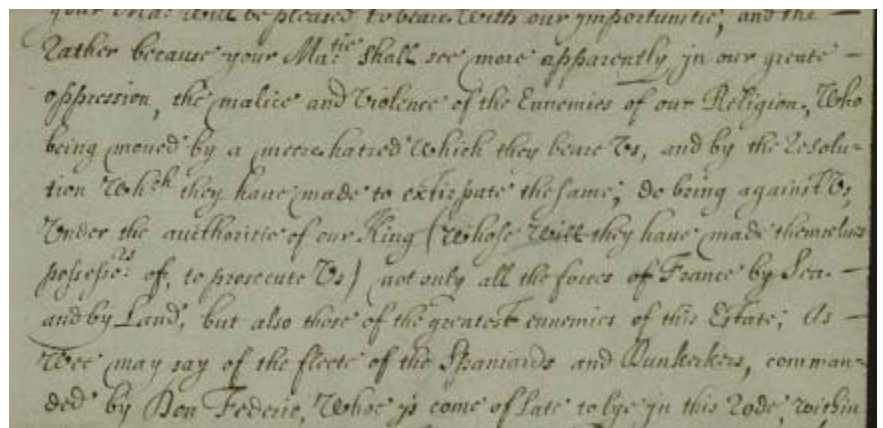 your Ma: will be pleased to beare with our importunitie, and the —
Rather because your Ma:tie shall see more apparently in our greate —
oppression, the malice and violence of the Ennemies of our Religion, Who
being moued by a meere hatred Which they beare Vs, and by the Resolu-
tion Wh:ch they haue made to extirpate the same; do bring against Vs,
Vnder the authoritie of our King (Whose Will they haue made themselues
possesso:rs of, to prosecute Vs) not only all the forces of France by Sea —
and by Land, but also those of the greatest ennemies of this Estate; As —
Wee may say of the fleete of the Spaniards and Dunkerkers, comman-
ded by Don Federic, Whoe is come of late to lye in this Rode, within